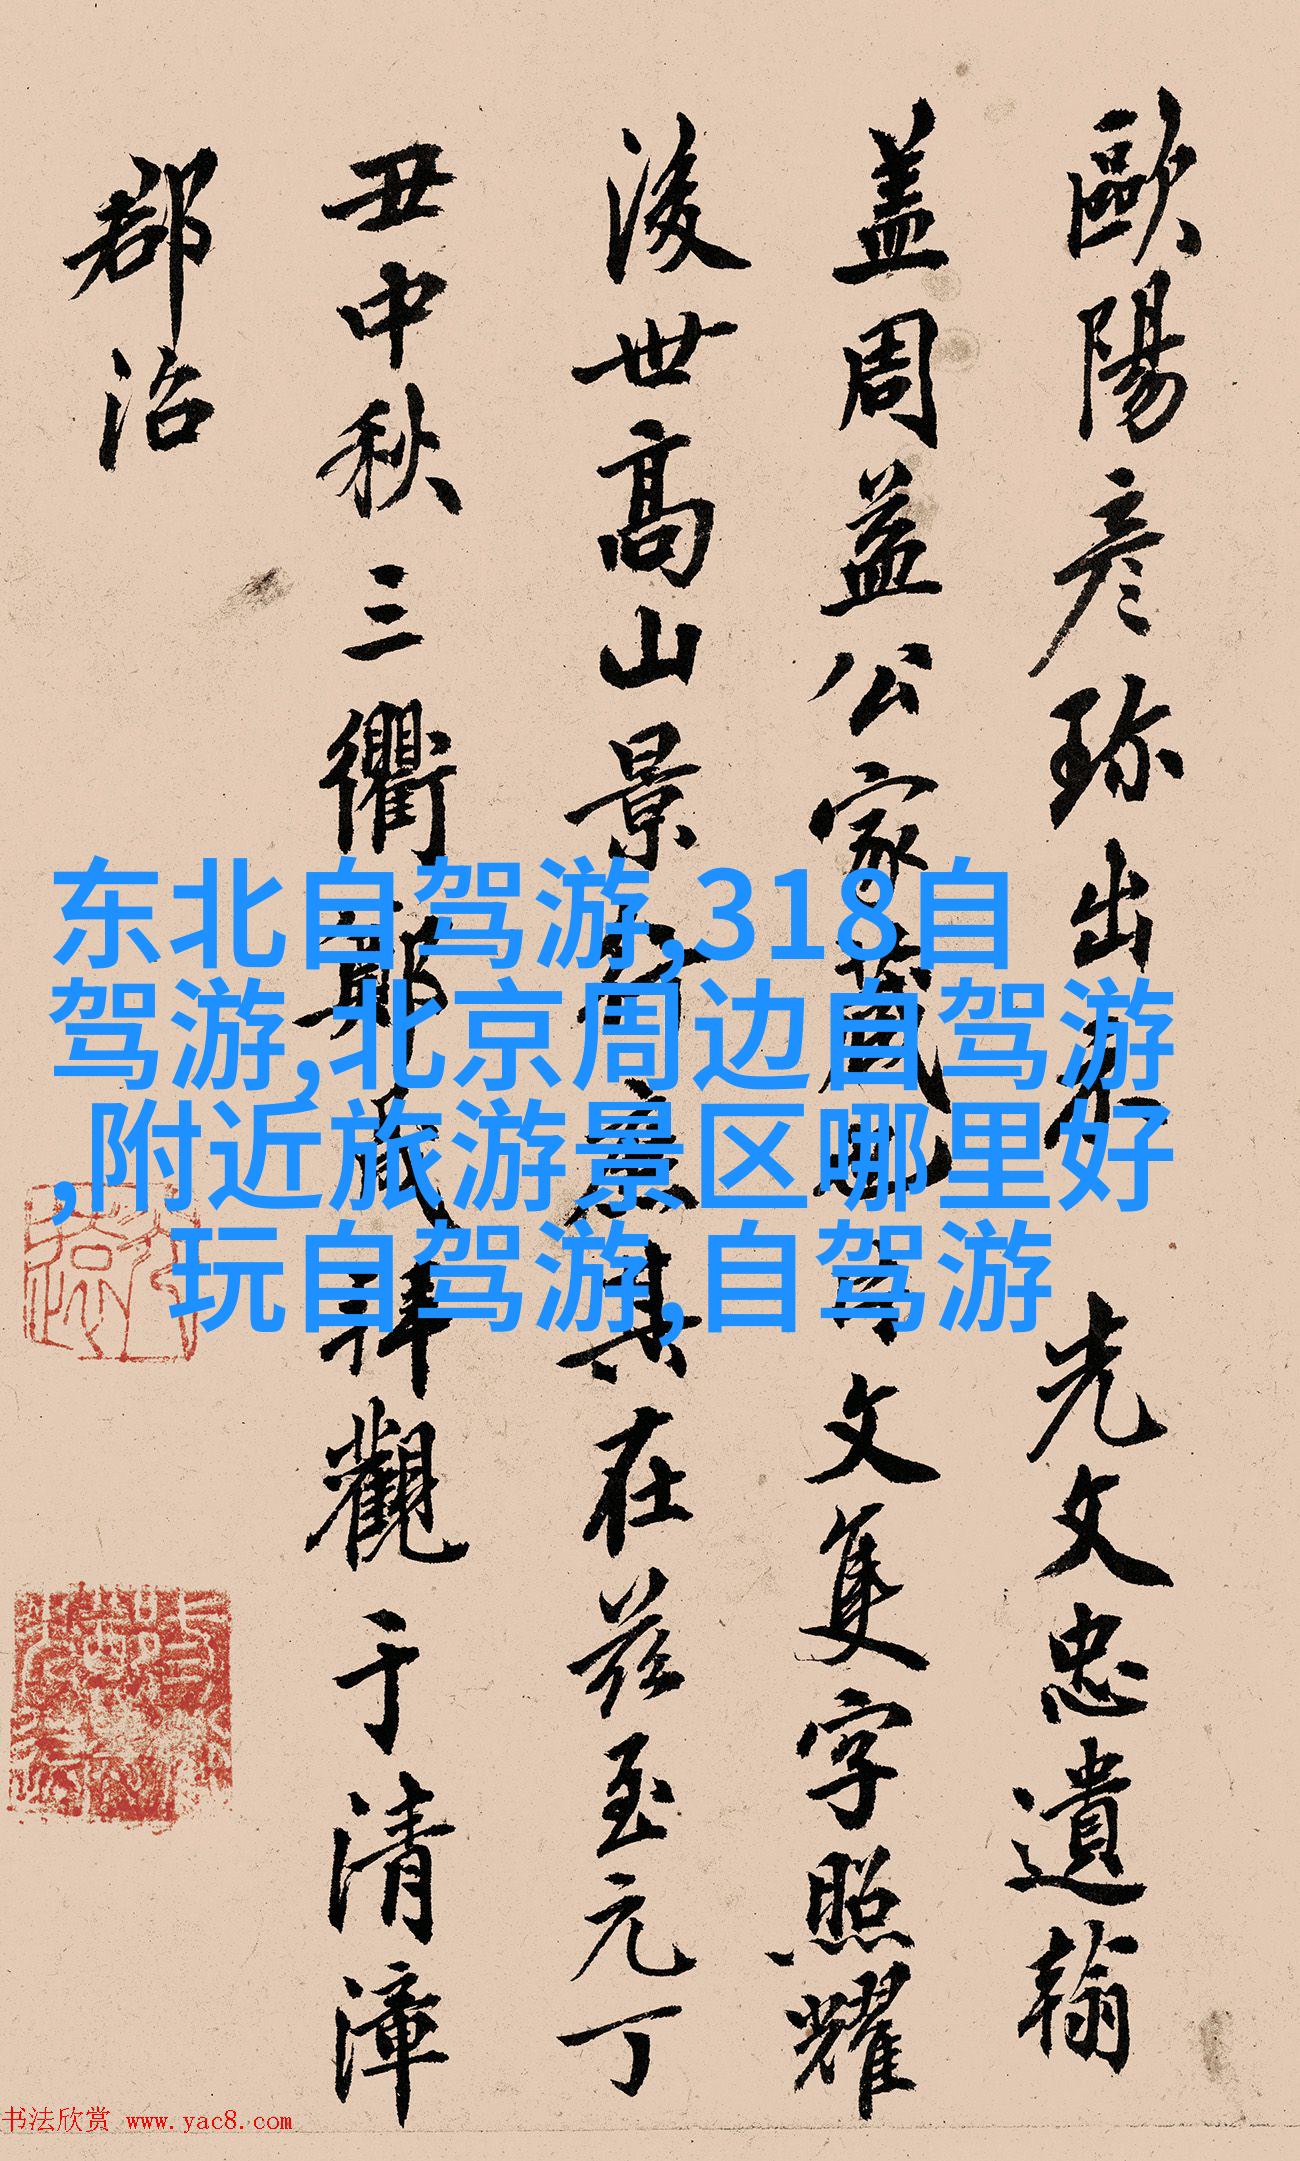 歐陽彦珎出 光文忠遺翰
盖周益公家藏也片文隻字照耀
後世高山景行意其在兹至元丁
丑中秋三衢鄭 拜觀于清漳
郡治
东北自驾游,318自
驾游,北京周边自驾游
,附近旅游景区哪里好
玩自驾游,自驾游
书法欣赏 www.yac8.com